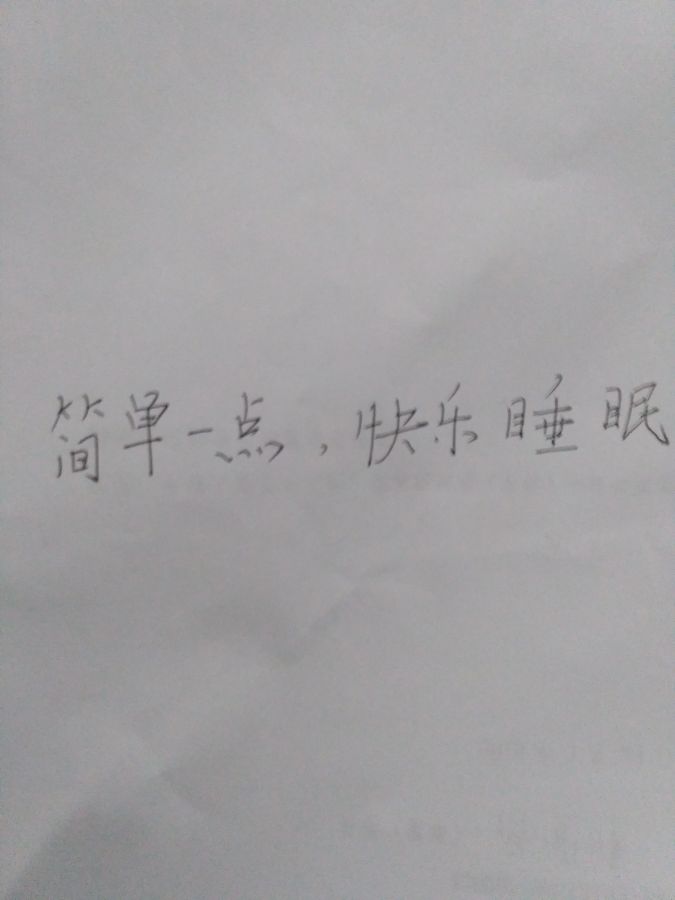 简单一点，快乐睡眠